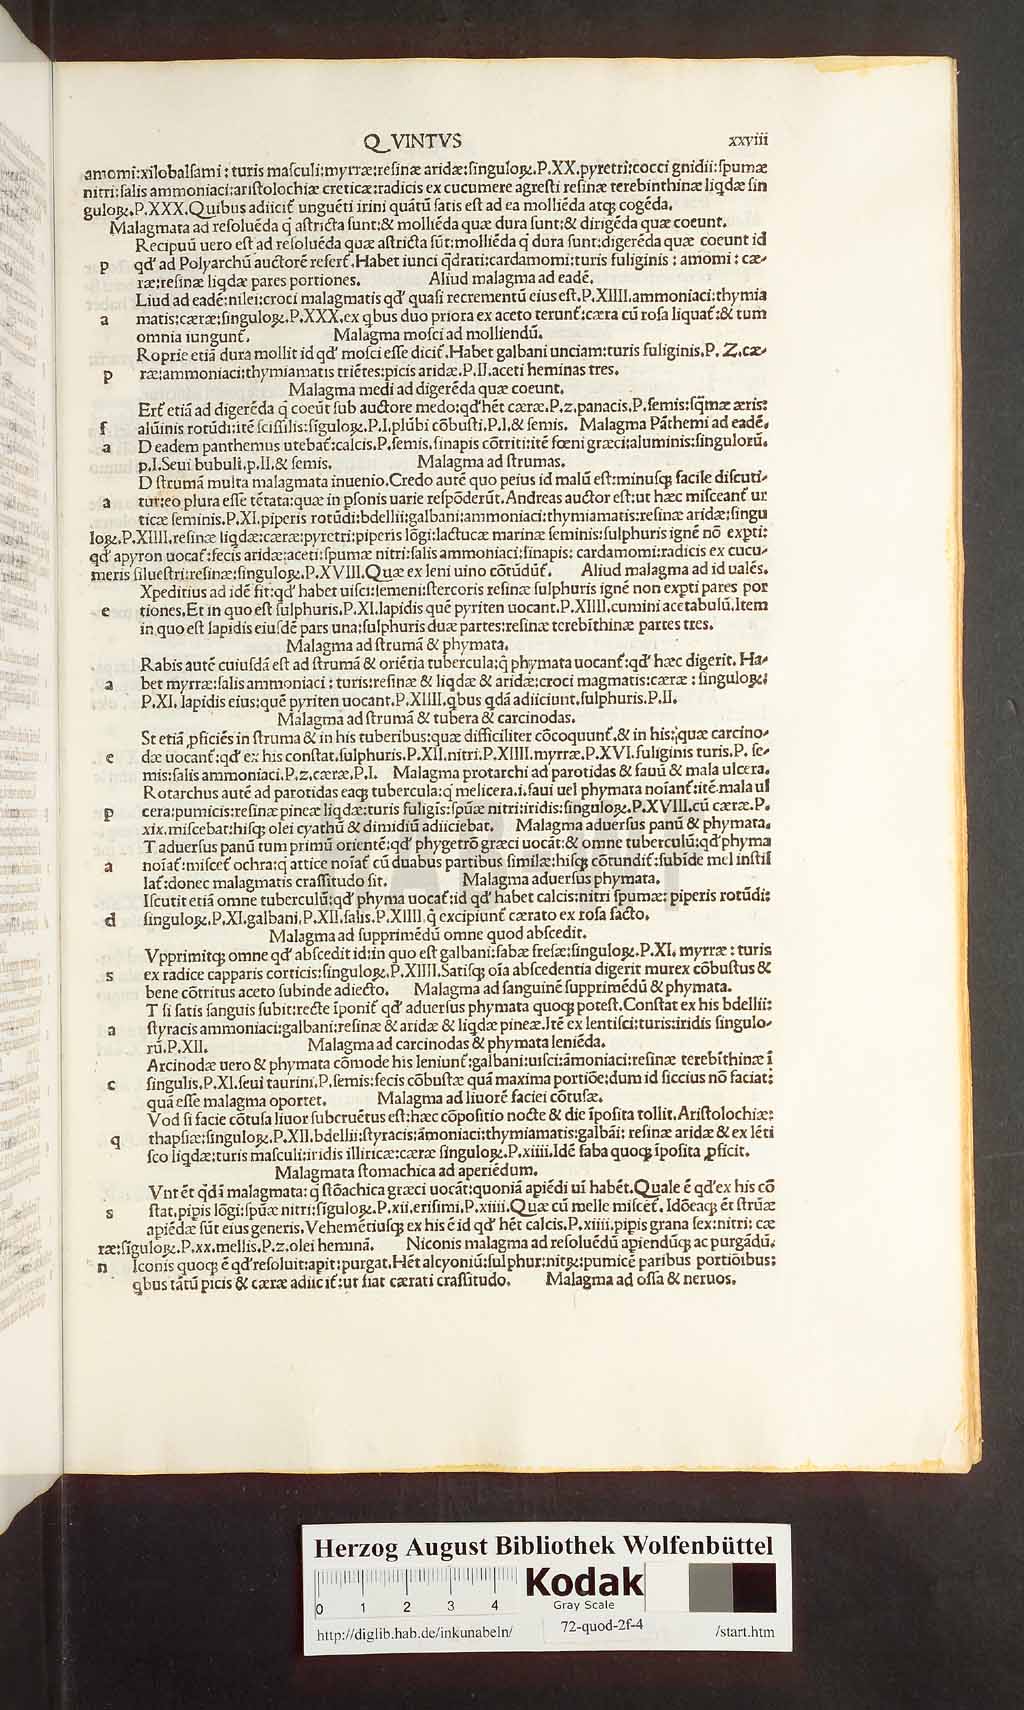 QVINTVS xxviii
amomi:xilobalsami: turis masculi:myrræ:resinæ aridæ:singuloꝝ.P.XX.pyretri:cocci gnidii:spumæ
nitri:salis ammoniaci:aristolochiæ creticæ:radicis ex cucumere agresti resinæ terebinthinæ liqdæ sin
guloꝝ.P.XXX.Quibus adiicit̃ unguẽti irini quãtũ satis est ad ea molliẽda atqꝫ cogẽda.
Malagmata ad resoluẽda q̃ astricta sunt:& molliẽda quæ dura sunt:& dirigẽda quæ coeunt.
Recipuũ uero est ad resoluẽda quæ astricta sũt:molliẽda q̃ dura sunt:digerẽda quæ coeunt id
p qđ ad Polyarchũ auctorẽ refert̃.Habet iunci q̃drati:cardamomi:turis fuliginis: amomi: cæ-
ræ:resinæ liqdæ pares portiones. Aliud malagma ad eadẽ.
Liud ad eadẽ:nilei:croci malagmatis qđ quasi recrementũ eius est.P.XIIII.ammoniaci:thymia
a matis:cæræ:singuloꝝ.P.XXX.ex qbus duo priora ex aceto terunt̃:cæra cũ rosa liquat̃:& tum
omnia iungunt̃. Malagma mosci ad molliendũ.
Roprie etiã dura mollit id qđ mosci esse dicit̃.Habet galbani unciam:turis fuliginis.P. Z.cæ-
p ræ:ammoniaci:thymiamatis triẽtes:picis aridæ.P.II.aceti heminas tres.
Malagma medi ad digerẽda quæ coeunt.
Ert̃ etiã ad digerẽda q̃ coeũt sub auctore medo:qđ hẽt cæræ.P.z.panacis.P.semis:sq̃mæ æris:
f alũinis rotũdi:itẽ scissilis:sĩguloꝝ.P.I.plũbi cõbusti.P.I.& semis. Malagma Pãthemi ad eadẽ.
a D eadem panthemus utebat̃:calcis.P.semis.sinapis cõtriti:itẽ fœni græci:aluminis:singulorũ.
p.I.Seui bubuli.p.II.& semis. Malagma ad strumas.
D strumã multa malagmata inuenio.Credo autẽ quo peius id malũ est:minusqꝫ facile discuti-
a tur:eo plura esse tẽtata:quæ in psonis uarie respõderũt.Andreas auctor est:ut hæc misceant̃ ur
ticæ seminis.P.XI.piperis rotũdi:bdellii:galbani:ammoniaci:thymiamatis:resinæ aridæ:singu
loꝝ.P.XIIII.resinæ liqdæ:cæræ:pyretri:piperis lõgi:lactucæ marinæ seminis:sulphuris ignẽ nõ expti:
qđ apyron uocat̃:fecis aridæ:aceti:spumæ nitri:salis ammoniaci:sinapis: cardamomi:radicis ex cucu-
meris siluestri:resinæ:singuloꝝ.P.XVIII.Quæ ex leni uino cõtũdũt̃. Aliud malagma ad id ualẽs.
Xpeditius ad idẽ fit:qđ habet uisci:semeni:stercoris resinæ sulphuris ignẽ non expti pares por
e tiones.Et in quo est sulphuris.P.XI.lapidis quẽ pyriten uocant.P.XIIII.cumini acetabulũ.Item
in quo est lapidis eiusdẽ pars una:sulphuris duæ partes:resinæ terebĩthinæ partes tres.
Malagma ad strumã & phymata.
Rabis autẽ cuiusdã est ad strumã & oriẽtia tubercula:q̃ phymata uocant̃:qđ hæc digerit. Ha-
a bet myrræ:salis ammoniaci: turis:resinæ & liqdæ & aridæ:croci magmatis:cæræ: singuloꝝ:
P.XI. lapidis eius:quẽ pyriten uocant.P.XIIII.qbus qdã adiiciunt.sulphuris.P.II.
Malagma ad strumã & tubera & carcinodas.
St etiã ꝓficiẽs in struma & in his tuberibus:quæ difficiliter cõcoquunt̃.& in his:quæ carcino-
e dæ uocant̃:qđ ex his constat.sulphuris.P.XII.nitri.P.XIIII.myrræ.P.XVI.fuliginis turis.P. se-
mis:salis ammoniaci.P.z.cæræ.P.I. Malagma protarchi ad parotidas & fauũ & mala ulcera.
Rotarchus autẽ ad parotidas eaqꝫ tubercula:q̃ melicera.i.faui uel phymata noĩant̃:itẽ mala ul
p cera:pumicis:resinæ pineæ liqdæ:turis fuligĩs:spũæ nitri:iridis:singuloꝝ.P.XVIII.cũ cæræ.P.
xix.miscebat:hisqꝫ olei cyathũ & dimidiũ adiiciebat. Malagma aduersus panũ & phymata.
T aduersus panũ tum primũ orientẽ:qđ phygetrõ græci uocãt:& omne tuberculũ:qđ phyma
a noĩat̃:miscet̃ ochra:q̃ attice noĩat̃ cũ duabus partibus similæ:hisqꝫ cõtundit̃:subĩde mel instil
lat̃:donec malagmatis crassitudo sit. Malagma aduersus phymata.
Iscutit etiã omne tuberculũ:qđ phyma uocat̃:id qđ habet calcis:nitri spumæ: piperis rotũdi:
d singuloꝝ.P.XI.galbani.P.XII.salis.P.XIIII.q̃ excipiunt̃ cærato ex rosa facto.
Malagma ad supprimẽdũ omne quod abscedit.
Vpprimitqꝫ omne qđ abscedit id:in quo est galbani:fabæ fresæ:singuloꝝ.P.XI. myrræ: turis
s ex radice capparis corticis:singuloꝝ.P.XIIII.Satisqꝫ oĩa abscedentia digerit murex cõbustus &
bene cõtritus aceto subinde adiecto. Malagma ad sanguinẽ supprimẽdũ & phymata.
T si satis sanguis subit:recte ĩponit̃ qđ aduersus phymata quoqꝫ potest.Constat ex his bdellii:
a styracis ammoniaci:galbani:resinæ & aridæ & liqdæ pineæ.Itẽ ex lentisci:turis:iridis singulo-
rũ.P.XII. Malagma ad carcinodas & phymata leniẽda.
Arcinodæ uero & phymata cõmode his leniunt̃:galbani:uisci:ãmoniaci:resinæ terebĩthinæ ĩ
c singulis.P.XI.seui taurini.P.semis:fecis cõbustæ quã maxima portiõe:dum id siccius nõ faciat:
quã esse malagma oportet. Malagma ad liuorẽ faciei cõtusæ.
Vod si facie cõtusa liuor subcruẽtus est:hæc cõpositio nocte & die ĩposita tollit.Aristolochiæ:
q thapsiæ:singuloꝝ.P.XII.bdellii:styracis:ãmoniaci:thymiamatis:galbãi: resinæ aridæ & ex lẽti
sco liqdæ:turis masculi:iridis illiricæ:cæræ singuloꝝ.P.xiiii.Idẽ faba quoqꝫ ĩposita ꝓficit.
Malagmata stomachica ad aperiẽdum.
Vnt ẽt q̃dã malagmata: q̃ stõachica græci uocãt:quoniã apiẽdi uĩ habẽt.Quale ẽ qđ ex his cõ
s stat.pipis lõgi:spũæ nitri:sĩguloꝝ.P.xii.erisimi.P.xiiii.Quæ cũ melle miscẽt̃.Idõeaqꝫ ẽt strũæ
apiẽdæ sũt eius generis.Vehemẽtiusqꝫ ex his ẽ id qđ hẽt calcis.P.xiiii.pipis grana sex:nitri: cæ
ræ:sĩguloꝝ.P.xx.mellis.P.z.olei heminã. Niconis malagma ad resoluẽdũ apiendũqꝫ ac purgãdũ.
n Iconis quoqꝫ ẽ qđ resoluit:apit:purgat.Hẽt alcyoniũ:sulphur:nitꝝ:pumicẽ paribus portiõibus:
qbus tãtũ picis & cæræ adiicit̃:ut fiat cærati crassitudo. Malagma ad ossa & neruos.
Herzog August Bibliothek Wolfenbüttel
0 1 2 3 4
Kodak
Gray Scale
http://diglib.hab.de/inkunabeln/ 72-quod-2f-4 /start.htm